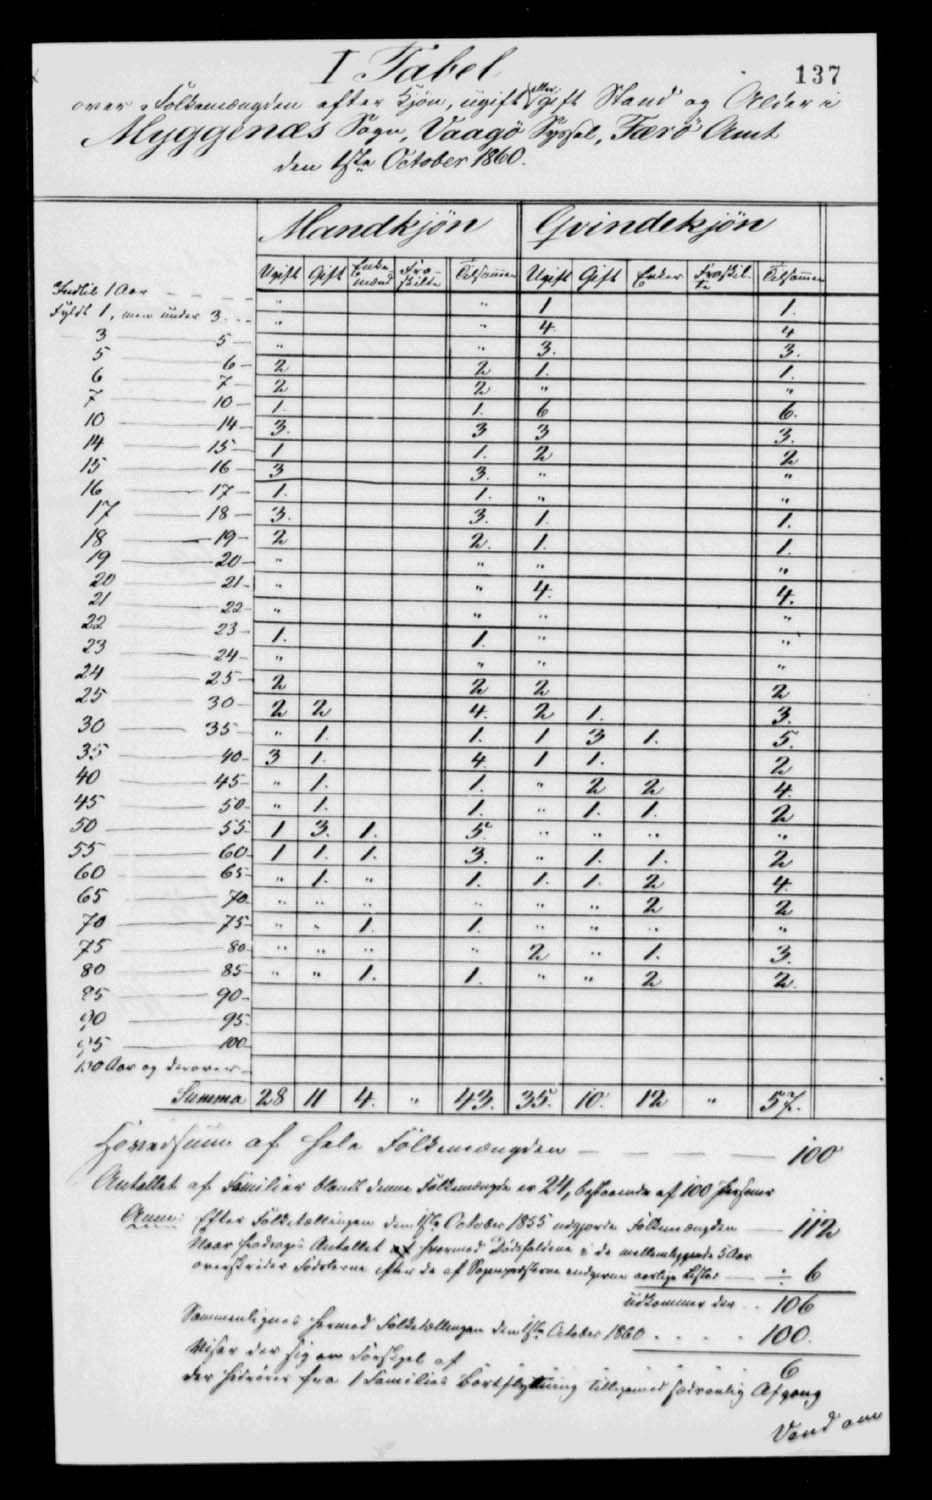 I Tabel
137
over Folkemængden efter Kjön, ugift eller gift Stand og Alder i
Myggenæs Sogn, Vaagö Syssel, Færö Amt
den 1ste October 1860.
Mandkjön Qvindekjön
Ugift Gift Enkemænd Fraskilte Tilsammen Ugift Gift Enker Fraskilte Tilsammen
Indtil 1 Aar " " 1 1.
Fyldt 1, men under 3 " " 4. 4
3 — 5 " " 3. 3.
5 — 6 2 2 1. 1.
6 — 7 2 2 " "
7 — 10 1. 1. 6 6.
10 — 14 3. 3 3 3.
14 — 15 1 1. 2 2
15 — 16 3 3. " "
16 — 17 1. 1. " "
17 — 18 3. 3. 1. 1.
18 — 19 2 2. 1. 1.
19 — 20 " " " "
20 — 21 " " 4. 4.
21 — 22 " " " "
22 — 23 1. 1. " "
23 — 24 " " " "
24 — 25 2 2 2 2
25 — 30 2 2 4. 2 1. 3.
30 — 35 " 1. 1. 1 3 1. 5.
35 — 40 3 1. 4. 1 1. 2
40 — 45 " 1. 1. " 2 2 4.
45 — 50 " 1. 1. " 1. 1. 2
50 — 55 1 3. 1. 5. " " " "
55 — 60 1 1. 1. 3. " 1. 1. 2
60 — 65 " 1. " 1. 1. 1. 2 4.
65 — 70 " " " " " " 2 2
70 — 75 " " 1. 1. " " " "
75 — 80 " " " " 2 " 1. 3.
80 — 85 " " 1. 1. " " 2 2.
85 — 90
90 — 95
95 — 100
100 Aar og derover
Summa 28 11 4. " 43. 35. 10. 12 " 57.
Hovedsum af hele Folkemængden — — — — 100
Antallet af Familier blandt denne Folkemængde er 24, bestaaende af 100 Personer
Anm: Efter Folketællingen den 1ste October 1855 udgjorde Folkemængden — 112
Naar fradrages Antallet hvormed Dödsfaldene i de mellemliggende 5 Aar
overskrider Födslerne efter de af Sognepræsterne aarlige Lister — ÷ 6
udkommer der . . 106
Sammenlignes hermed Folketællingen den 1ste October 1860 . . . . 100.
Viser der sig en Forskjel af 6
der hidrörer fra 1 Families Bortflytning tilligemed sædvanlig Afgang
Vend om